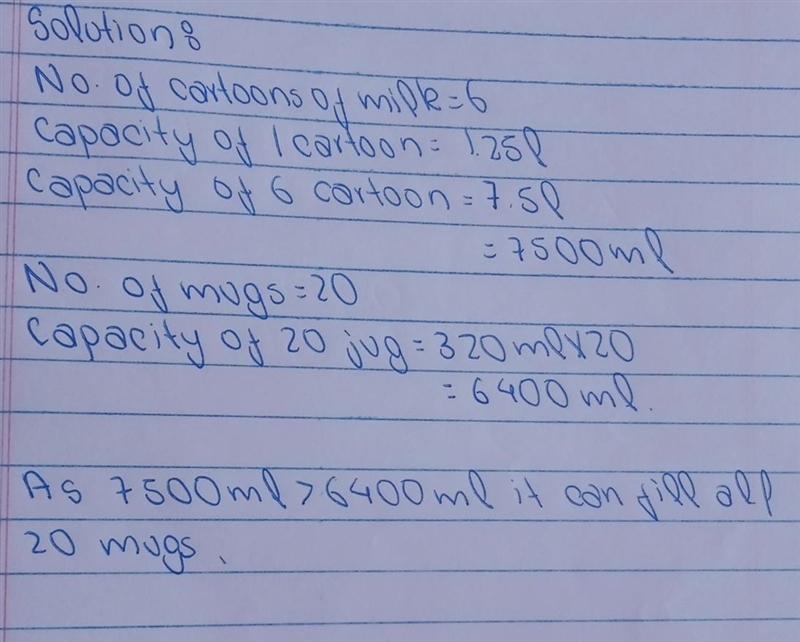 Solution:
No. of cartoons of milk = 6
Capacity of 1 cartoon = 1.25l
Capacity of 6 cartoon = 7.5l
= 7500ml
No. of mugs = 20
Capacity of 20 jug = 320ml x 20
= 6400ml.
As 7500ml > 6400ml it can fill all
20 mugs.